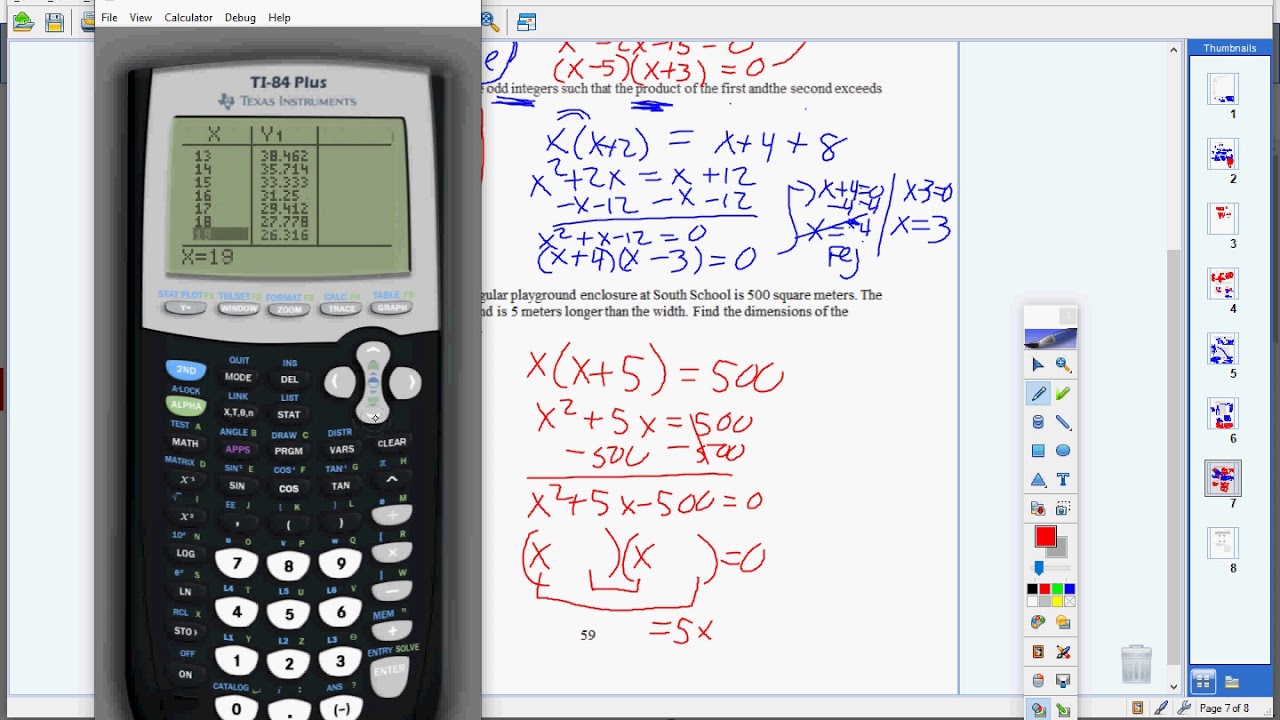 File View Calculator Debug Help
TI-84 Plus
TEXAS INSTRUMENTS
X Y1
13 38.462
14 35.714
15 33.333
16 31.25
17 29.412
18 27.778
19 26.316
X=19
STAT PLOT F1 TBLSET F2 FORMAT F3 CALC F4 TABLE F5
Y= WINDOW ZOOM TRACE GRAPH
QUIT INS
2ND MODE DEL
A-LOCK LINK LIST
ALPHA X,T,θ,n STAT
TEST A ANGLE B DRAW C DISTR
MATH APPS PRGM VARS CLEAR
MATRIX D SIN⁻¹ E COS⁻¹ F TAN⁻¹ G π H
X⁻¹ SIN COS TAN ^
√ I EE J { K } L e M
X² , ( ) ÷
10ˣ N u O v P w Q [ R
LOG 7 8 9 ×
eˣ S L4 T L5 U L6 V ] W
LN 4 5 6 −
RCL X L1 Y L2 Z L3 θ MEM "
STO› 1 2 3 +
OFF CATALOG i : ANS ? ENTRY SOLVE
ON 0 . (-) ENTER
(x-5)(x+3) = 0
odd integers such that the product of the first andthe second exceeds
x(x+2) = x+4+8
x²+2x = x+12
-x-12 -x-12
x²+x-12=0
(x+4)(x-3)=0
x+4=0
-4 -4
x=-4
Rej
x-3=0
x=3
gular playground enclosure at South School is 500 square meters. The
nd is 5 meters longer than the width. Find the dimensions of the
x(x+5)=500
x²+5x=500
-500 -500
x²+5x-500=0
(x )(x )=0
=5x
59
Thumbnails
1
2
3
4
5
6
7
8
Page 7 of 8